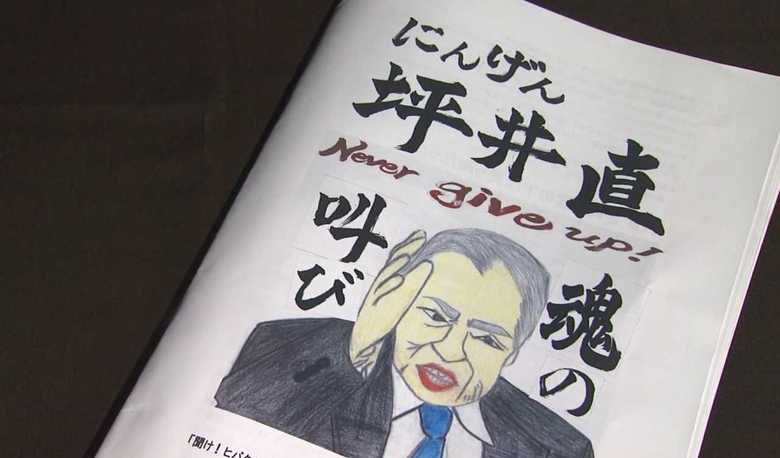 にんげん
坪井直
Never give up!
魂の
叫び
「聞け!ヒバク